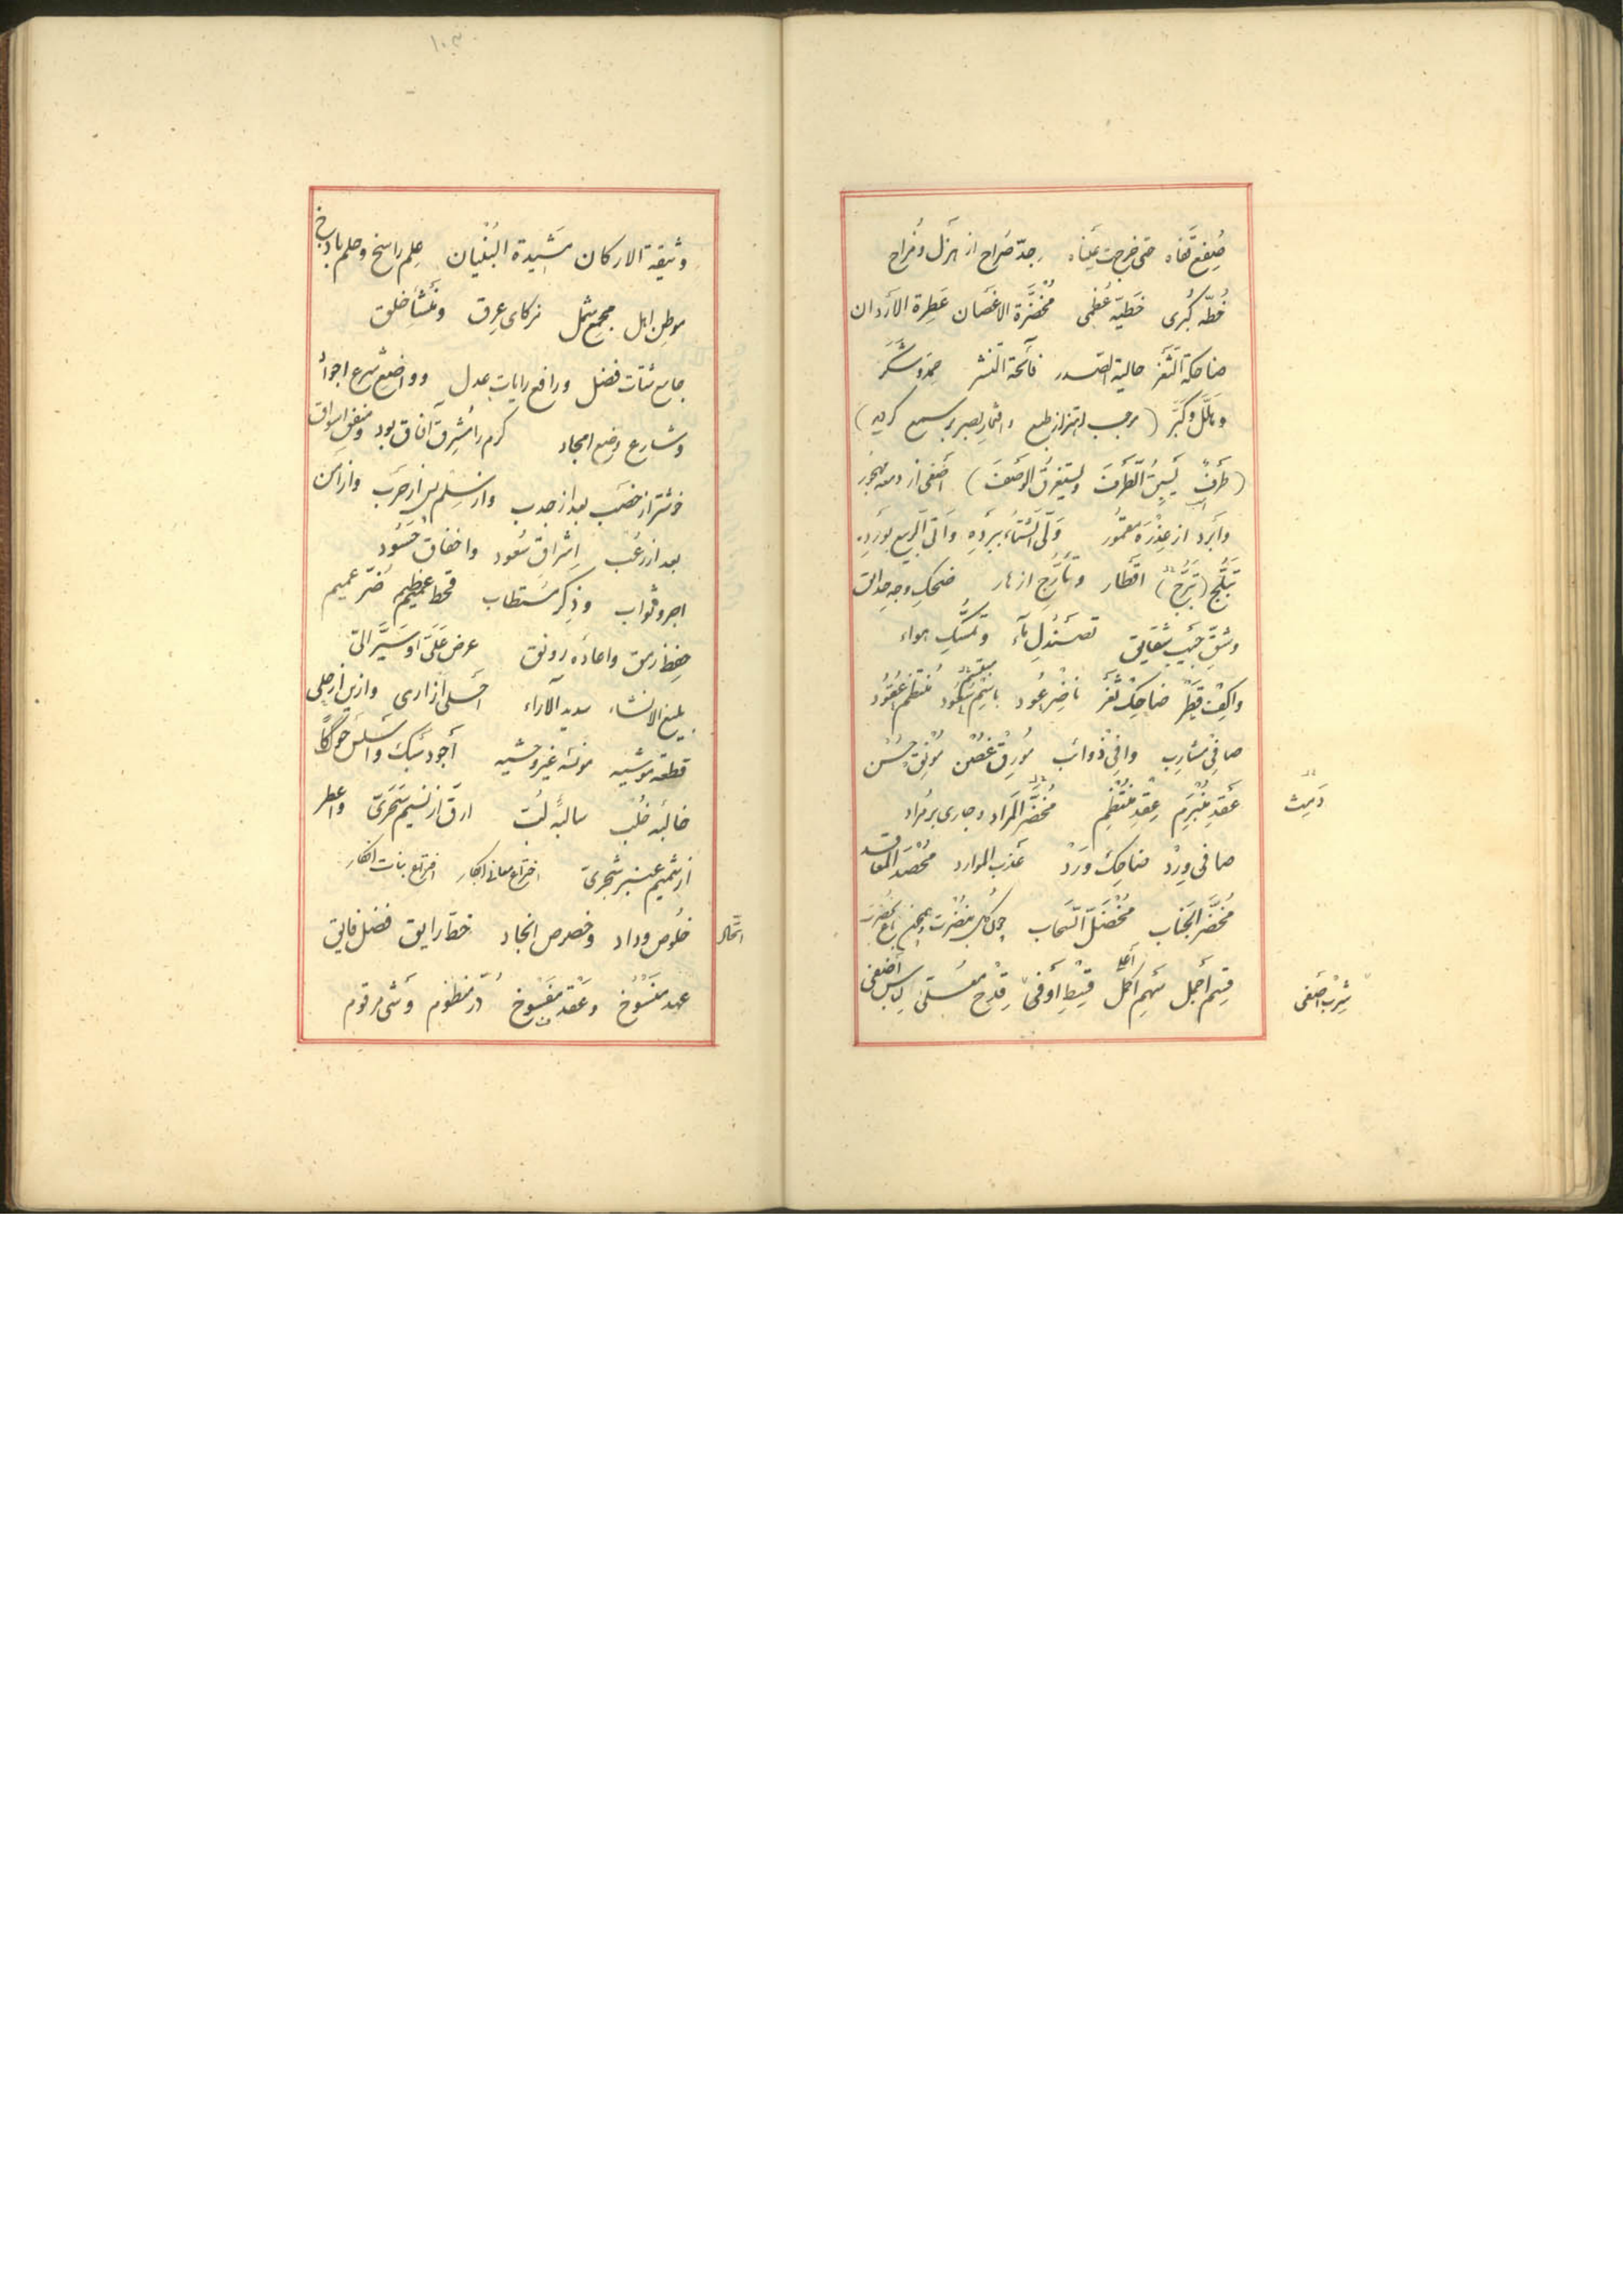 صُفِعَ قَفاه حتى خرجت عیناه و جدّ صُراح از هزل و مُزاح
خُطّه کُبری خَطیّه عُظمی مُخضَرّة الاغصان عَطِرة الأردان
ضاحکة الثغر حالیة الصدر فائحة النشر حمد و شکر
و هَلّلَ و کبّر (موجب اهتزاز طبع
(طَرفٌ یَسبِقُ الطَّرفَ و یستغرقُ الوَصفَ) أصفی از دمعه مهجور
و أبرد از مقمور وَلّی الشتاء ببَرده و أتی الربیع بوَرده
تبلّج (تبرّج) اقطار و تأرّج ازهار ضحک وجه حدائق
و شقّ جَیب شقایق تصندل ماء و تمسّک هواء
واکف قَطر ضاحک ثغر ناضر عود باسم منتظم عقود
صافی مشارب وافی ذوائب مُورق غُصن مُونق حُسن
عَقد مُنبَرِم عِقد مُنتَظِم مُخضَرّ المَراد و جاری بر مُراد
دَمِث
صافی وِرْد ضاحک وَرْد عذب الموارد مُحصَد المعاقد
مُخضَرّ الجناب مُخضَلّ السحاب چون گل بنضرت و چمن بخضرت
قِسم أجمل سَهم أکمل أعلا قسط أوفی قِدح مُعلّی لباس أضفی
شِرب أصفی
وثیقة الارکان مَشیدة البُنیان علم راسخ و حلم باذخ
موطن اهل مجمع شمل زکای عِرق و مَنشأ خلق
جامع شتات فضل و رافع رایات عدل و واضع شرع اجواد
و شارع وضع امجاد کرم را مُشرِق آفاق بود و مُنفِق اسواق
خوشتر از خِصب بعد از جدب و از سلم پس از حَرب و از امن
بعد از رُعب اِشراق سُعود و اخفاق حَسُود
اجر و ثواب و ذکر مستطاب قحط عظیم ضرّ عمیم
حفظ رمق و اعاده رونق عرض عَلَیّ او سَیَّر الیّ
بلیغ الانشاء سدید الآراء احلی از اری و ازین از حلی
قطعه موشیه مونسه غیر وحشیه أجود سَبکاً و أسلس حَوکاً
خالبه خُلب سالبه لُبّ ارقّ از نسیم سَحَری و اعطر
از شمیم عنبر شحری اختراع معانی ابکار افتراع بنات افکار
خلوص وداد و خصوص اتحاد خط رایق فضل فایق
عهد منسوخ و عقد مفسوخ دُرّ منظوم و وَشی مرقوم